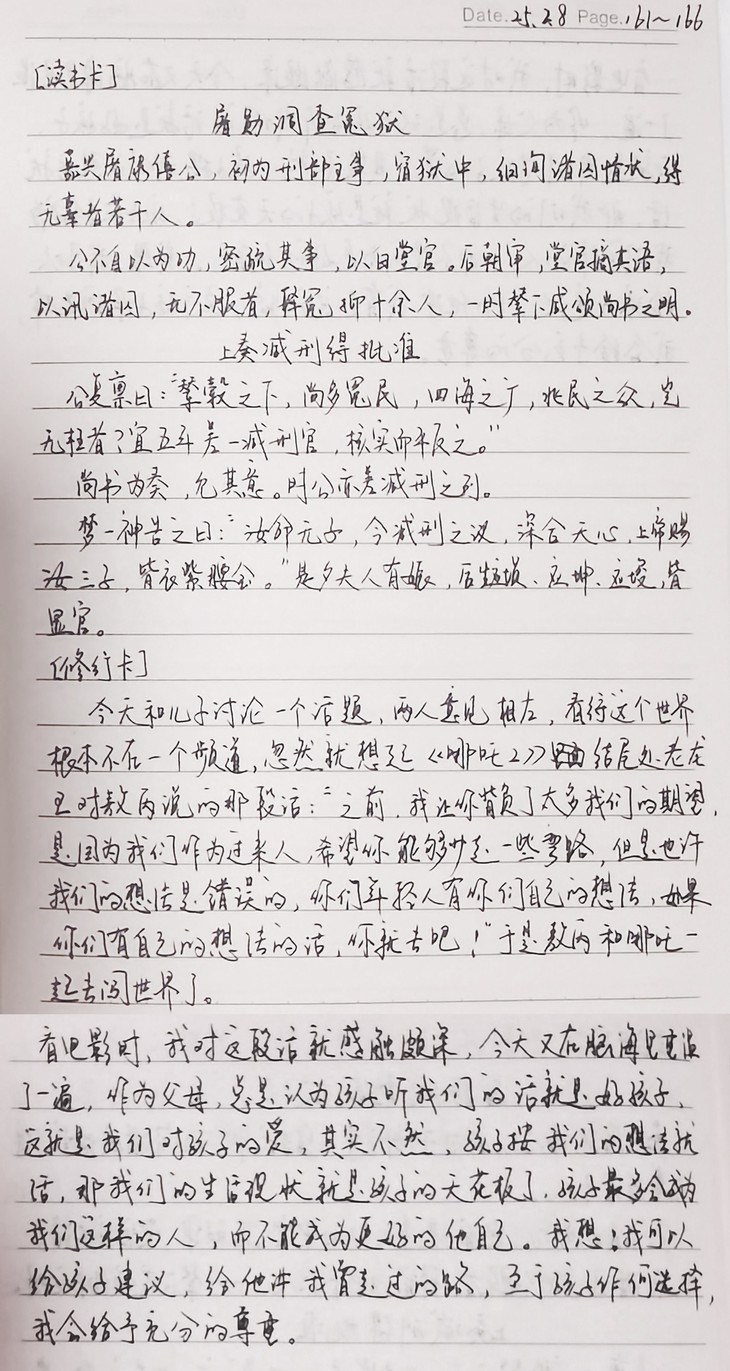 Date. 25.2.8 Page. 161~166
[读书卡]
屠勋洞查冤狱
嘉兴屠康僖公，初为刑部主事，宿狱中，细询诸囚情状，得
无辜者若干人。
公不自以为功，密疏其事，以白堂官。后朝审，堂官摘其语，
以讯诸囚，无不服者，释冤抑十余人，一时辇下咸颂尚书之明。
上奏减刑得批准
公复禀曰："辇毂之下，尚多冤民，四海之广，兆民之众，岂
无枉者？宜五年差一减刑官，核实而平反之。"
尚书为奏，允其意。时公亦差减刑之列。
梦一神告之曰："汝命无子，今减刑之议，深合天心，上帝赐
汝三子，皆衣紫腰金。"是夕夫人有娠，后生应埙、应坤、应埈，皆
显官。
[修行卡]
今天和儿子讨论一个话题，两人意见相左，看待这个世界
根本不在一个频道，忽然就想起《哪吒2》结尾处老龙
王对敖丙说的那段话："之前，我让你背负了太多我们的期望，
是因为我们作为过来人，希望你能够少走一些弯路，但是也许
我们的想法是错误的，你们年轻人有你们自己的想法，如果
你们有自己的想法的话，你就去吧！"于是敖丙和哪吒一
起去闯世界了。
看电影时，我对这段话就感触颇深，今天又在脑海里重演
了一遍，作为父母，总是认为孩子听我们的话就是好孩子，
这就是我们对孩子的爱，其实不然，孩子按我们的想法就
活，那我们的生活现状就是孩子的天花板了，孩子最多会成为
我们这样的人，而不能成为更好的他自己。我想：我可以
给孩子建议，给他讲我曾走过的路，至于孩子作何选择，
我会给予充分的尊重。